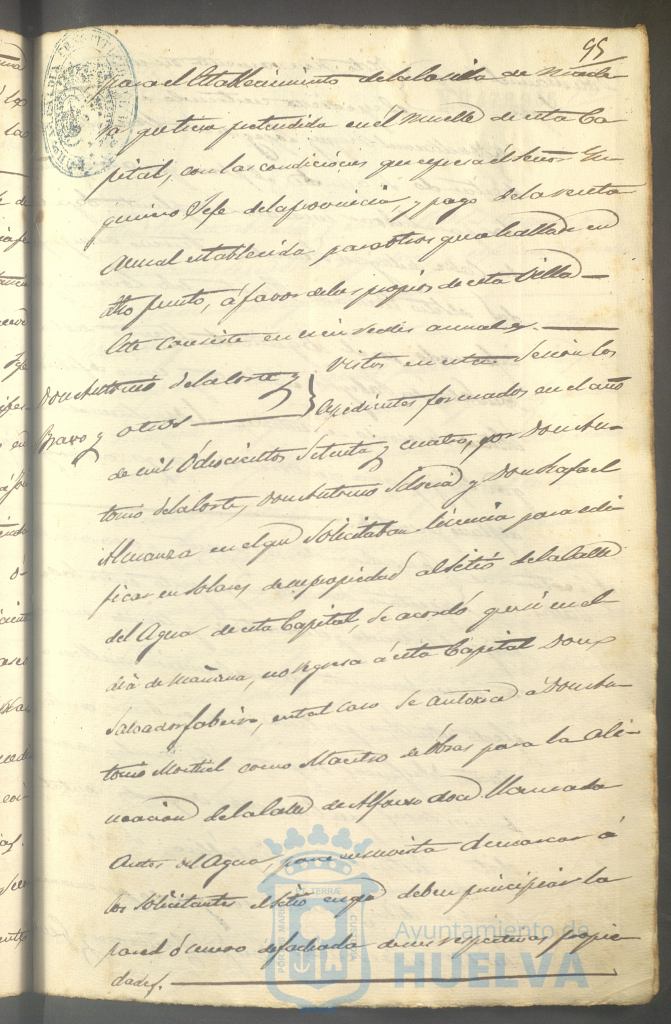 95
para el Establecimiento de la Casilla de made-
ra que tiene pretendida en el Muelle de esta Ca-
pital, con las condiciones que expresa el Señor Yn-
geniero Jefe de la provincia, y pago de la renta
anual establecida para otros que se hallan en
dho punto, á favor de los propios de esta Villa
Este consiste en cien reales annales.
Don Antonio de la Corte y
Bravo y otros
Vistos en esta Sesion los
Expedientes formados en el año
de mil Ochocientos Setenta y cuatro, por Don An-
tonio de la Corte, Don Antonio y Don Rafael
Almanza en el que Solicitaban licencia para edi
ficar en Solares de su propiedad al sitio de la Calle
del Agua de esta Capital, Se acordó que si en el
dia de mañana, no regresa á esta Capital Don
Salvador, en tal caso se autoriza á Don An-
tonio como Maestro de Obras para la ali-
neacion de la Calle de Alfonso doce llamada
Antes del Agua, para en su vista demarcar á
los Solicitantes el sitio en que deben principiar la
pared ó muro de fachada de sus respectivas propie
dades.
Ayuntamiento de
HUELVA